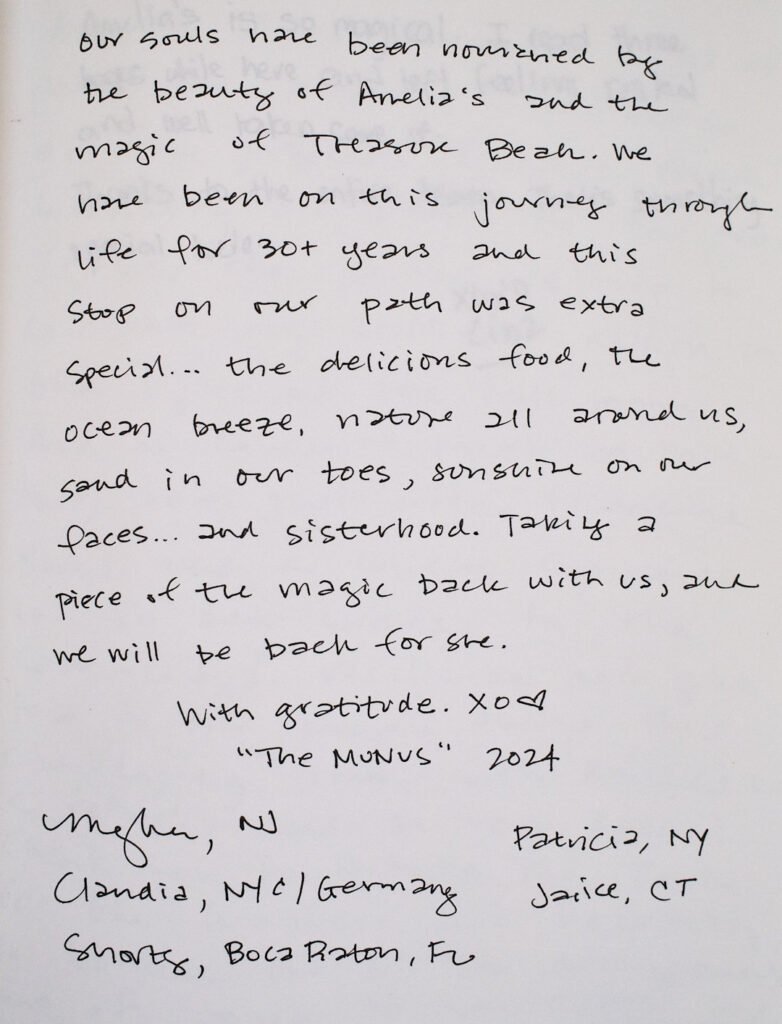 our souls have been nourished by
the beauty of Amelia's and the
magic of Treasure Beach. We
have been on this journey through
life for 30+ years and this
stop on our path was extra
special... the delicious food, the
ocean breeze, nature all around us,
sand in our toes, sunshine on our
faces... and sisterhood. Taking a
piece of the magic back with us, and
we will be back for sure.
With gratitude. XO♡
"The MUNUS" 2024
NJ
Patricia, NY
Claudia, NYC/Germany
Janice, CT
Shorty, Boca Raton, FL